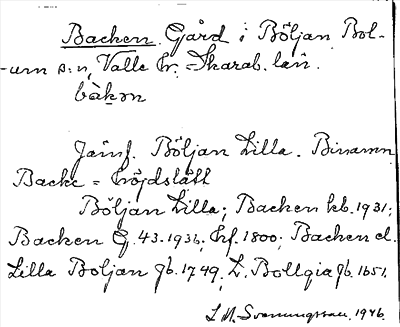 Backen. Gård i Böljan Bol-
-um s:n, Valle hr. Skarab. län.
bàkən
Jämf. Böljan Lilla. Binamn
Backe = höjdslätt
Böljan Lilla; Backen kb. 1931;
Backen G. 43. 1936; hf. 1800; Backen el.
Lilla Boljan jb. 1749; L. Bollgia jb. 1651.
L. M. Svenungsson, 1946.